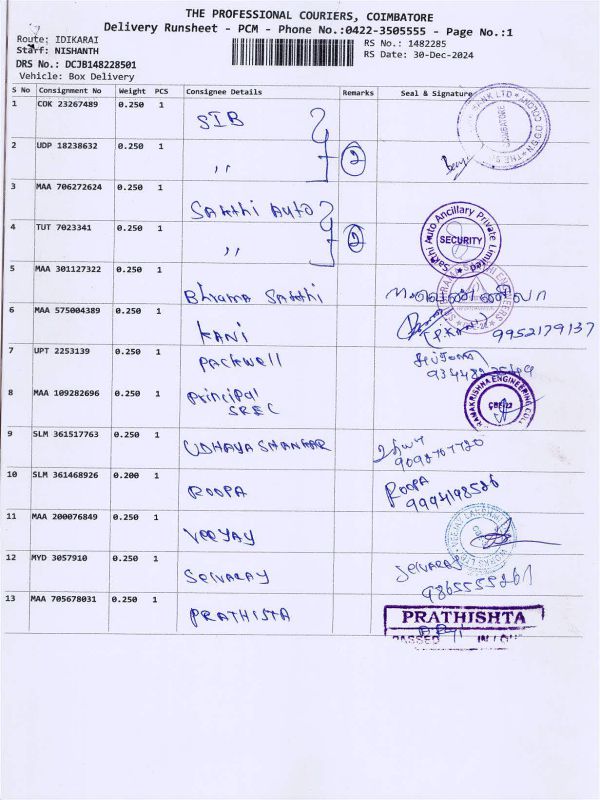 THE PROFESSIONAL COURIERS, COIMBATORE
Delivery Runsheet - PCM - Phone No.:0422-3505555 - Page No.:1
Route: IDIKARAI
RS No.: 1482285
Staff: NISHANTH
RS Date: 30-Dec-2024
DRS No.: DCJB148228501
Vehicle: Box Delivery
S No Consignment No Weight PCS Consignee Details Remarks Seal & Signature
1 COK 23267489 0.250 1 SIB
2 UDP 18238632 0.250 1 ,, 2
3 MAA 706272624 0.250 1 Sakthi Auto
4 TUT 7023341 0.250 1 ,, 2
Sakthi Auto Ancillary Private Limited
SECURITY
5 MAA 301127322 0.250 1 Bhrama Sakthi
6 MAA 575004389 0.250 1 KANI (P.KANI) 9952179137
7 UPT 2253139 0.250 1 Packwell
8 MAA 109282696 1 0.250 Principal SREC
RAMAKRISHNA ENGINEERING COLL
9 SLM 361517763 0.250 1 UDHAYA SHANKAR
10 SLM 361468926 0.200 1 ROOPA ROOPA
11 MAA 200076849 0.250 1 VEEJAY
12 MYD 3057910 0.250 1 SELVARAJ SELVARAJ
13 MAA 705678031 0.250 1 PRATHISTA
PRATHISHTA